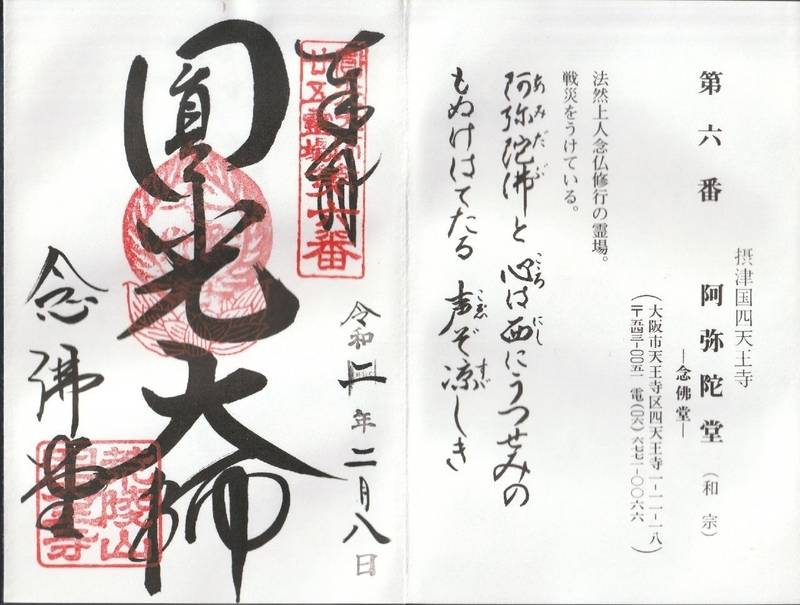 摂津国四天王寺
第六番 阿弥陀堂（和宗）
―念佛堂―
（大阪市天王寺区四天王寺一-一一-一八
〒五四三-〇〇五一 電（〇六）六七七一-〇〇六六）
法然上人念仏修行の霊場。
戦災をうけている。
阿弥陀佛と 心は西にうつせみの
あみだぶ こころ にし
もぬけはてたる 声ぞ凉しき
こゑ すゞ
奉拝
廿五霊場第六番
圓光大師
令和二年二月八日
念佛堂
荒陵山
四天王寺